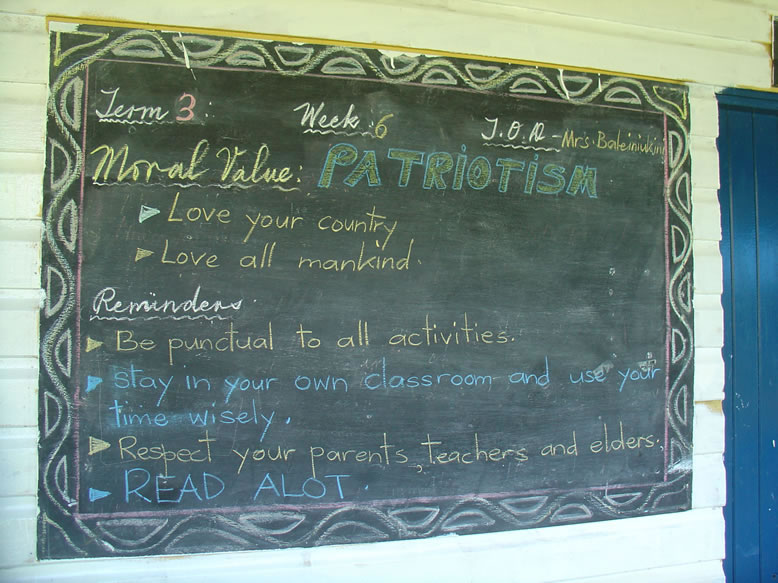 Term 3: Week: 6 T.O.D - Mrs. Baleiniukini
Moral Value: PATRIOTISM
Love your country
Love all mankind.
Reminders.
Be punctual to all activities.
Stay in your own classroom and use your
time wisely.
Respect your parents, teachers and elders.
READ ALOT.